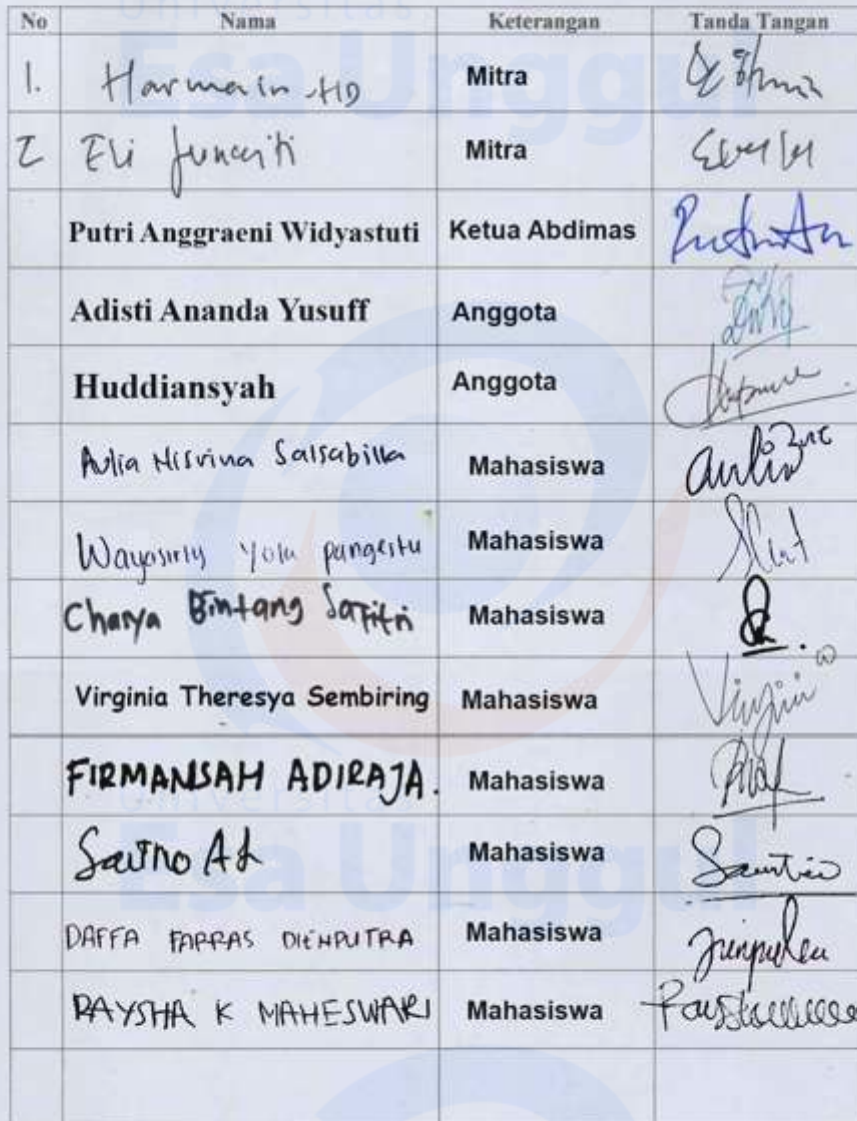 Universitas
Esa Unggul
No Nama Keterangan Tanda Tangan
1. Harmain HD Mitra
2 Eli Mitra
Putri Anggraeni Widyastuti Ketua Abdimas
Adisti Ananda Yusuff Anggota
Huddiansyah Anggota
Aulia Nisvina Salsabilla Mahasiswa
Yola pangestu Mahasiswa
Charya Bintang Safitri Mahasiswa
Virginia Theresya Sembiring Mahasiswa Virgini
FIRMANSAH ADIRAJA. Mahasiswa
Universitas
Esa Unggul
Mahasiswa
DAFFA FARRAS DIENPUTRA Mahasiswa
RAYSHA K MAHESWARI Mahasiswa